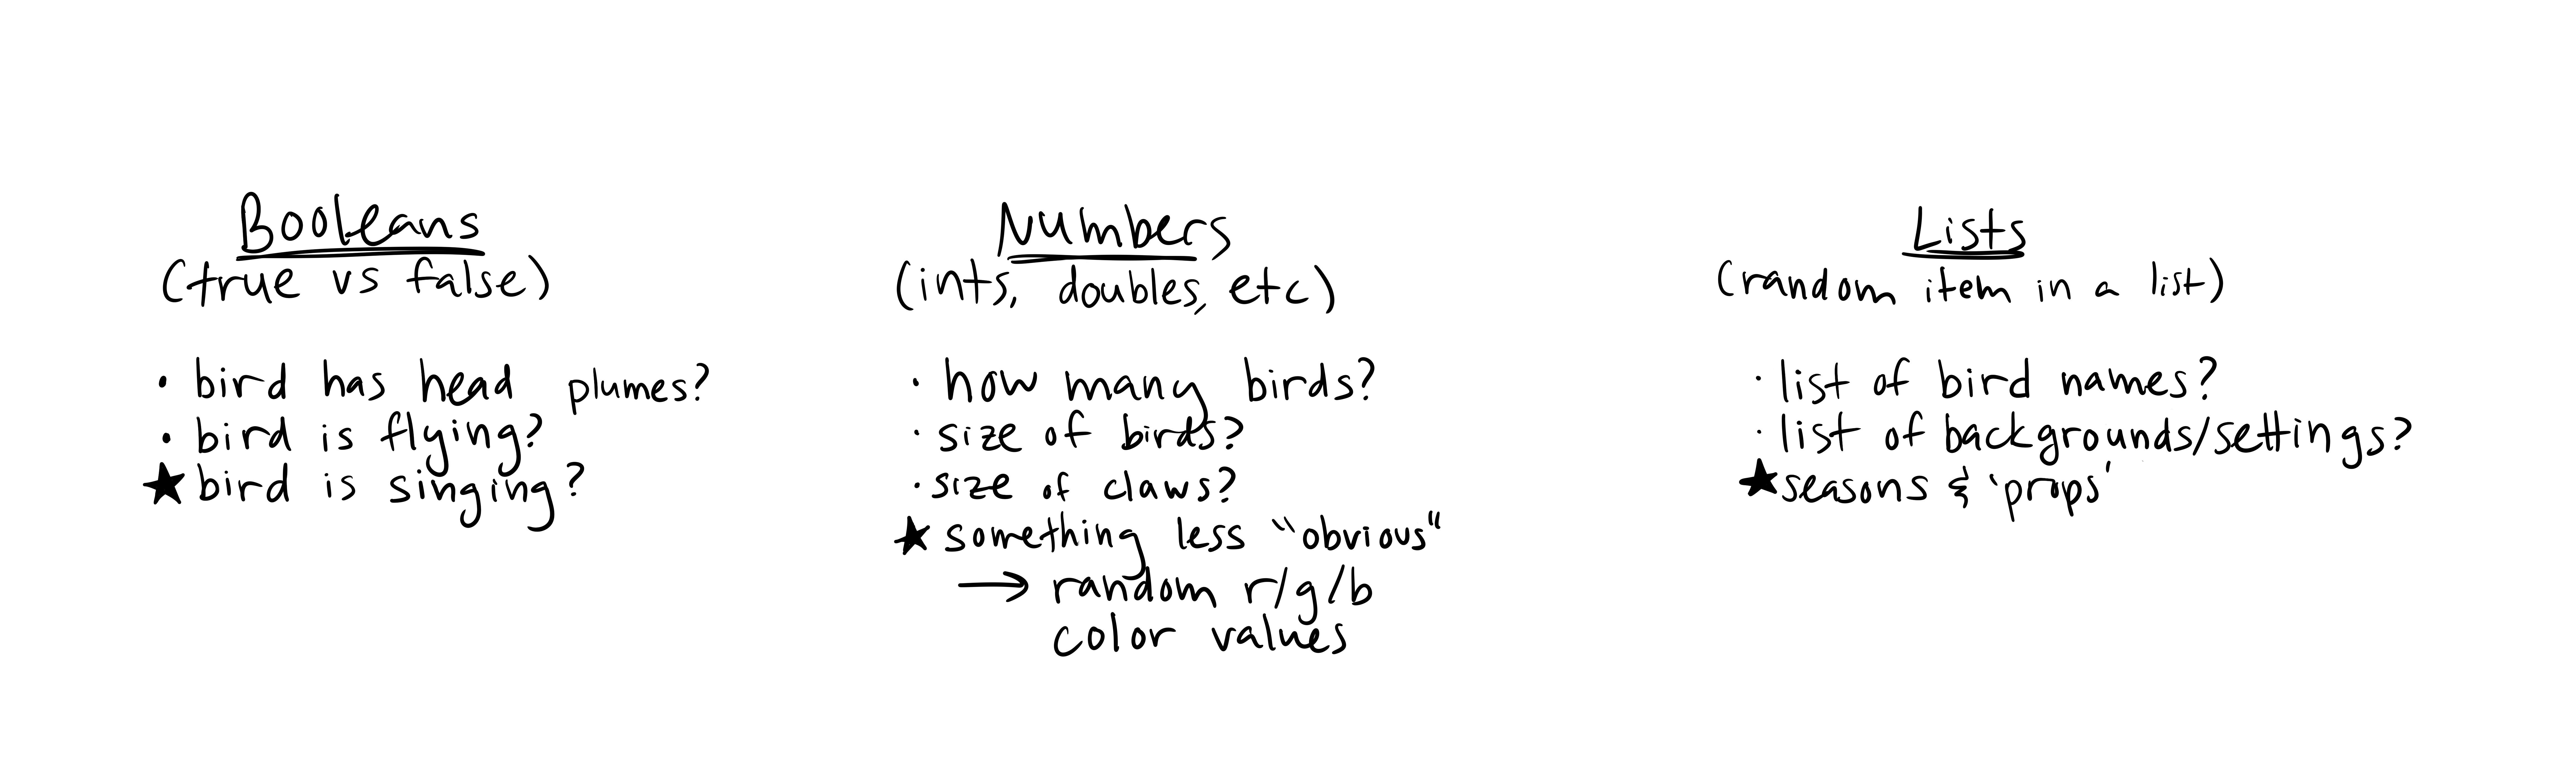 Booleans
(true vs false)
• bird has head plumes?
• bird is flying?
★ bird is singing?
Numbers
(ints, doubles, etc)
• how many birds?
• size of birds?
• size of claws?
★ something less "obvious"
→ random r/g/b
color values
Lists
(random item in a list)
• list of bird names?
• list of backgrounds/settings?
★ seasons & 'props'